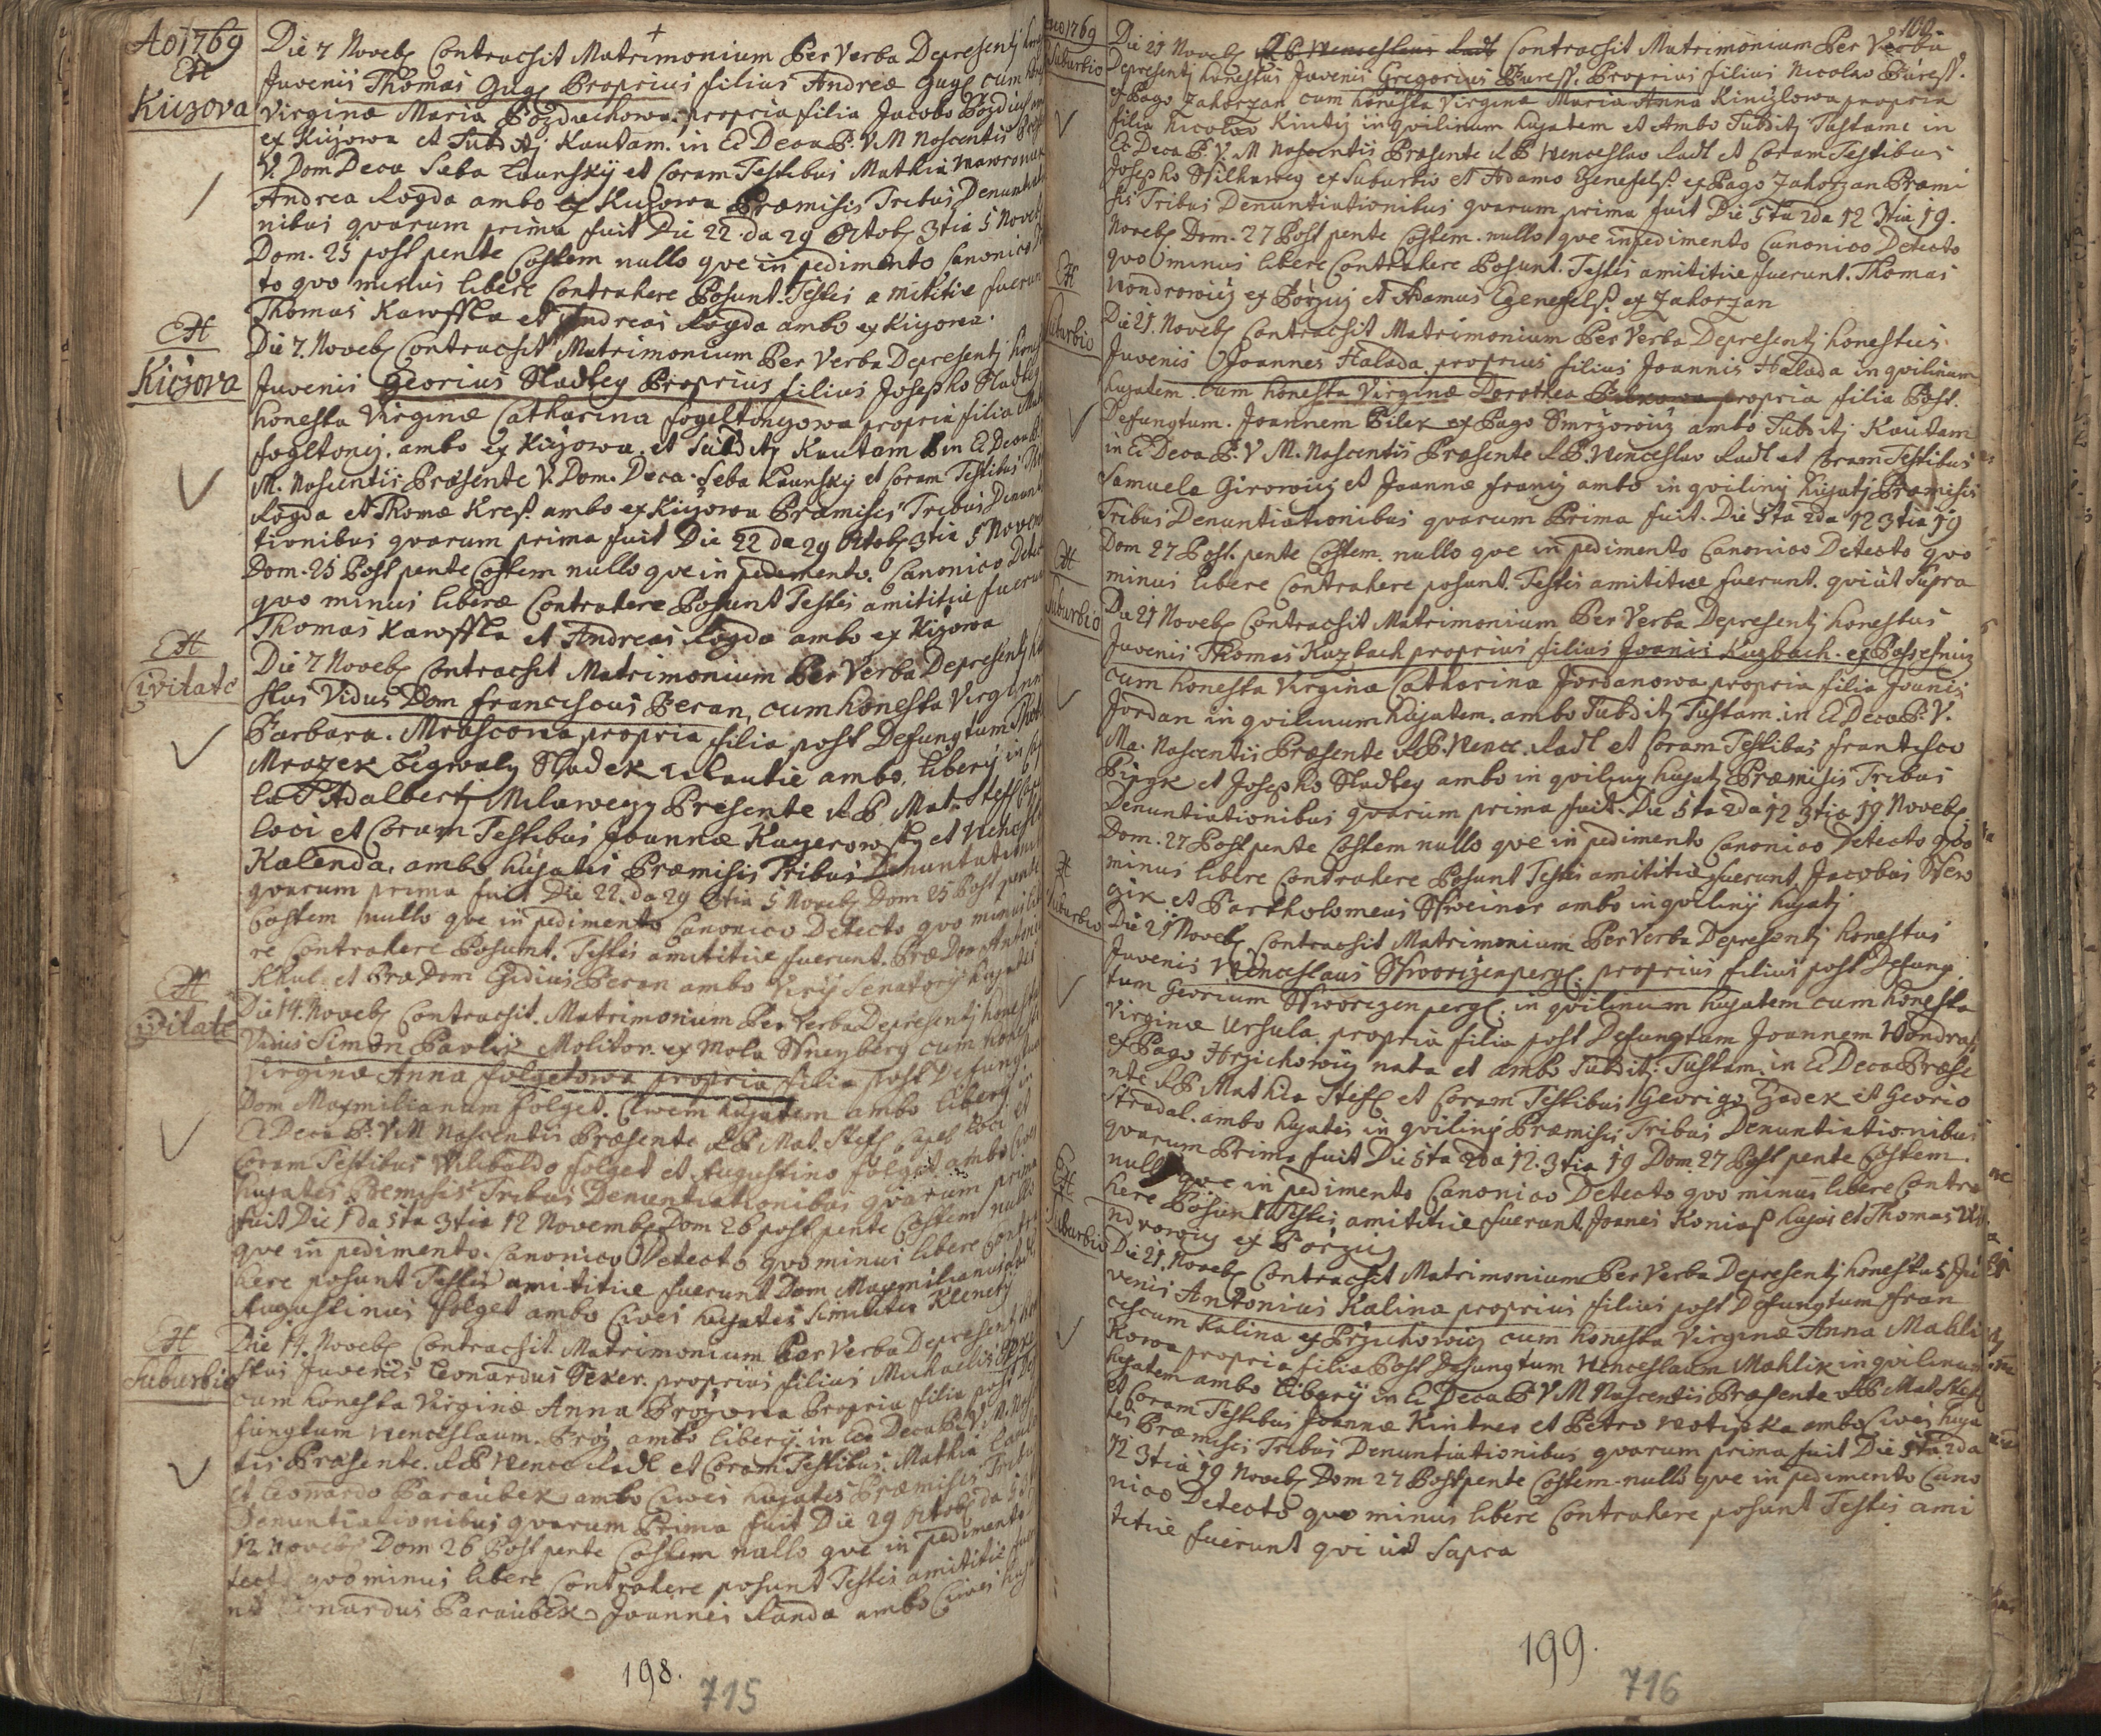 Ao 1769
Kiczova
Die 7 Noveb Contracsit Matrimonium Per Verba Depresentj
Juvenis Thomas Gugl Proprius filius Andreæ Gugl cum
Virginæ Maria Pozduchowa propria filia Jacobo Pozduch
ex Kizowa et Subditj Kautam. in Ec Deca B. V M Nascentis
V. Dom Deca Seba Launskÿ et Coram Testibus Mathia
Andrea Rogda ambo ex Kizowa Præmisis Tribus Denuntiatio
nibus qvarum prima fuit Die 22 da 29 Octob 3tia 5 Noveb
Dom. 25 post pente Costem nullo qve in pedimento Canonico
to qvo minus libere Contrahere Posunt. Testes amititiæ fuerunt
Thomas Kawffka et Andreas Rogda ambo ex Kizowa.
Kiczova
Die 7. Noveb Contracsit Matrimonium Per Verba Depresentj
Juvenis Georius Sladkey Proprius filius Josepho Sladkey
honesta Virginæ Catharina fogeltonyowa propria filia
fogltonij. ambo ex Kizowa. et Subditj Kautam in Ec Deca B.
M. Nascentis Præsente V. Dom. Deca. Seba Launskÿ et Coram Testibus
Rogda et Thomæ Kreß ambo ex Kizowa Præmisis Tribus Denuntia
tionibus qvarum prima fuit Die 22 da 29 Octob 3tia 5 Novem
Dom. 25 Post pente Costem nullo qve in pedimento. Canonico Detecto
qvo minus liberæ Contrahere Posunt Testes amititiæ fuerunt
Thomas Kawffka et Andreas Rogda ambo ex Kizowa
Civitate
Die 7 Noveb Contracsit Matrimonium Per Verba Depresentj
stus Vidus Dom franciscus Beran, cum honesta Virginæ
Barbara. Mrascowa propria filia post Defungtum
Mrazek Sladek ambo. liberÿ in
Adalbertj Præsente R P Mat. Steff
loci et Coram Testibus Joannæ Kayerowskÿ et
Kalenda, ambo hujates Præmisis Tribus Denuntiationi
qvarum prima fuit Die 22. da 29 3tia 5 Noveb Dom 25 Post pente
Costem nullo qve in pedimento Canonico Detecto qvo minus libe
re Contrahere Posunt. Testes amititiæ fuerunt. Præ Dom Antonius
Khul. et Præ Dom Egidius Beran ambo Virÿ Senatorÿ hujates
Civitate
Die 14. Noveb Contracsit. Matrimonium Per Verba Depresentj
Vidus Simon Pavlik Molitor. ex Mola Shneyberg cum
Virginæ Anna folgetowa propria filia post Defungtum
Dom Maxmilianum folget. Civem hujatem ambo liberÿ in
Ec Deca B. V. M Nascentis Præsente R P Mat. Steff Capel loci et
Coram Testibus Wilibaldo folget et Augustino folget ambo
hujates Premisis Tribus Denuntiationibus qvarum prima
fuit Die 1 da 5ta 3tia 12 Novembr Dom 26 post pente Costem nullo
qve in pedimento. Canonico Detecto qvo minus libere Contra
here posunt Testes amititiæ fuerunt Dom Maxmilianus
Augustinus folget ambo Cives hujates Similiter
Suburbio
Die 14. Noveb Contracsit. Matrimonium Per Verba Depresentj
stus Juvenis Leonardus Seker. proprius filius Michaelis
cum honesta Virginæ Anna Propria filia post De
fungtum Wenceslaum. ambo liberÿ. in Ec Deca B. V. M. Nascen
tis Præsente. R P Wence Radl et Coram Testibus. Mathia
et Leonardo Paraubek ambo Cives hujates Præmisis Tribus
Denuntiationibus qvarum Prima fuit Die 29 Octob da 5
12 Noveb Dom 26 Post pente Costem nullo qve in pedimento
tecto qvo minus libere Contrahere posunt Testes amititiæ
Leonardus Paraubek Joannes Randa ambo Cives
198.
715
100
Ao 1769
Suburbio
Die 21 Noveb R P Wenceslaus Radl Contracsit Matrimonium Per Verba
Depresentj honestus Juvenis Gregorius Bureß. Proprius filius Nicolao Bureß.
ex Pago Zahorzan cum honesta Virginæ Maria Anna Kintzlowa propria
filia Nicolao Kintzj inqvilinum hujatem et Ambo Subditj Tustame in
Ec Deca B. V. M Nascentis Præsente R P Wenceslao Radl et Coram Testibus
Josepho Stilhaweg ex Suburbio et Adamo Egenefelß. ex Pago Zahorzan Præmi
sis Tribus Denuntiationibus qvarum prima fuit Die 5ta 2da 12 3tia 19.
Noveb Dom. 27 Post pente Costem. nullo qve inpedimento Canonico Detecto
qvo minus libere Contrahere Posunt. Testes amititiæ fuerunt. Thomas
Wondrowicz ex Borzicz et Adamus Egenefelß. ex Zahorzan
Suburbio
Die 21. Noveb Contracsit Matrimonium Per Verba Depresentj honestus
Juvenis Joannes Halada. proprius filius Joannis Halada inqvilinum
hujatem. cum honesta Virginæ Dorothea Pilkowa propria filia Post.
Defungtum. Joannem Pilek ex Pago Smrzowicz ambo Subditj Kautam
in Ec Deca B. V M. Nascentis Præsente R P. Wenceslao Radl et Coram Testibus
Samuele Girowicz et Joannæ franij ambo inqvilinÿ hujatj Præmisis
Tribus Denuntiationibus qvarum Prima fuit. Die 5ta 2da 12 3tia 19
Dom 27 Post. pente Costem. nullo qve in pedimento Canonico Detecto qvo
minus libere Contrahere posunt. Testes amititiæ fuerunt. qvi ut Supra
Suburbio
Die 21 Noveb Contracsit Matrimonium Per Verba Depresentj honestus
Juvenis Thomas Kuzbach proprius filius Joanis Kuzbach. ex
cum honesta Virginæ Catharina Jordanowa propria filia Joanis
Jordan inqvilinum hujatem. ambo Subditj Tustam. in Ec Deca B. V.
Ma. Nascentis Præsente R P. Wence. Radl et Coram Testibus frantisco
et Josepho Sladkey ambo inqvilinÿ hujatj Præmisis Tribus
Denuntiationibus qvarum prima fuit. Die 5ta 2da 12 3tia 19 Noveb.
Dom. 27 Post pente Costem nullo qve in pedimento Canonico Detecto qvo
minus libere Contrahere Posunt Testes amititiæ fuerunt Jacobus
et Bartholomeus Shweiner ambo inqvilinÿ hujatj
Suburbio
Die 21 Noveb. Contracsit Matrimonium Per Verba Depresentj honestus
Juvenis Wenceslaus Shworczenpergl. proprius filius post Defung
tum Georium Shworczenpergl. inqvilinum hujatem cum honesta
Virginæ Ursula. propria filia post Defungtum Joannem
ex Pago Hrzichowicz nata et ambo Subditj. Tustam. in Ec Deca Præse
nte R P Mathia Steff et Coram Testibus Georigo Gadek et Georio
Stradal. ambo hujates inqvilinÿ Præmisis Tribus Denuntiationibus
qvarum Prima fuit Die 5ta 2da 12. 3tia 19 Dom. 27 Post pente Costem.
nullo qve in pedimento Canonico Detecto qvo minus libere Contra
here Posunt Testes amititiæ fuerunt. Joanes Koniaß hujas et Thomas Wo
ndrowicz ex Borzicz
Suburbio
Die 21. Noveb Contracsit Matrimonium Per Verba Depresentj honestus Ju
venis Antonius Kalina proprius filius post Defungtum fran
ciscum Kalina ex Przichowicz cum honesta Virginæ Anna Mahli
kowa propria filia Post Defungtum Wenceslaum Mahlik inqvilinum
hujatem ambo liberÿ in Ec Deca B. V M Nascentis Præsente R P Mat Steff
et Coram Testibus Joannæ Kintner et Petro Wotipka ambo Cives huja
tes Præmisis Tribus Denuntiationibus qvarum prima fuit Die 5ta 2da
12 3tia 19 Noveb Dom 27 Post pente Costem. nullo qve in pedimento Cano
nico Detecto qvo minus libere Contrahere posunt Testes ami
titiæ fuerunt qvi ut Supra
199.
716